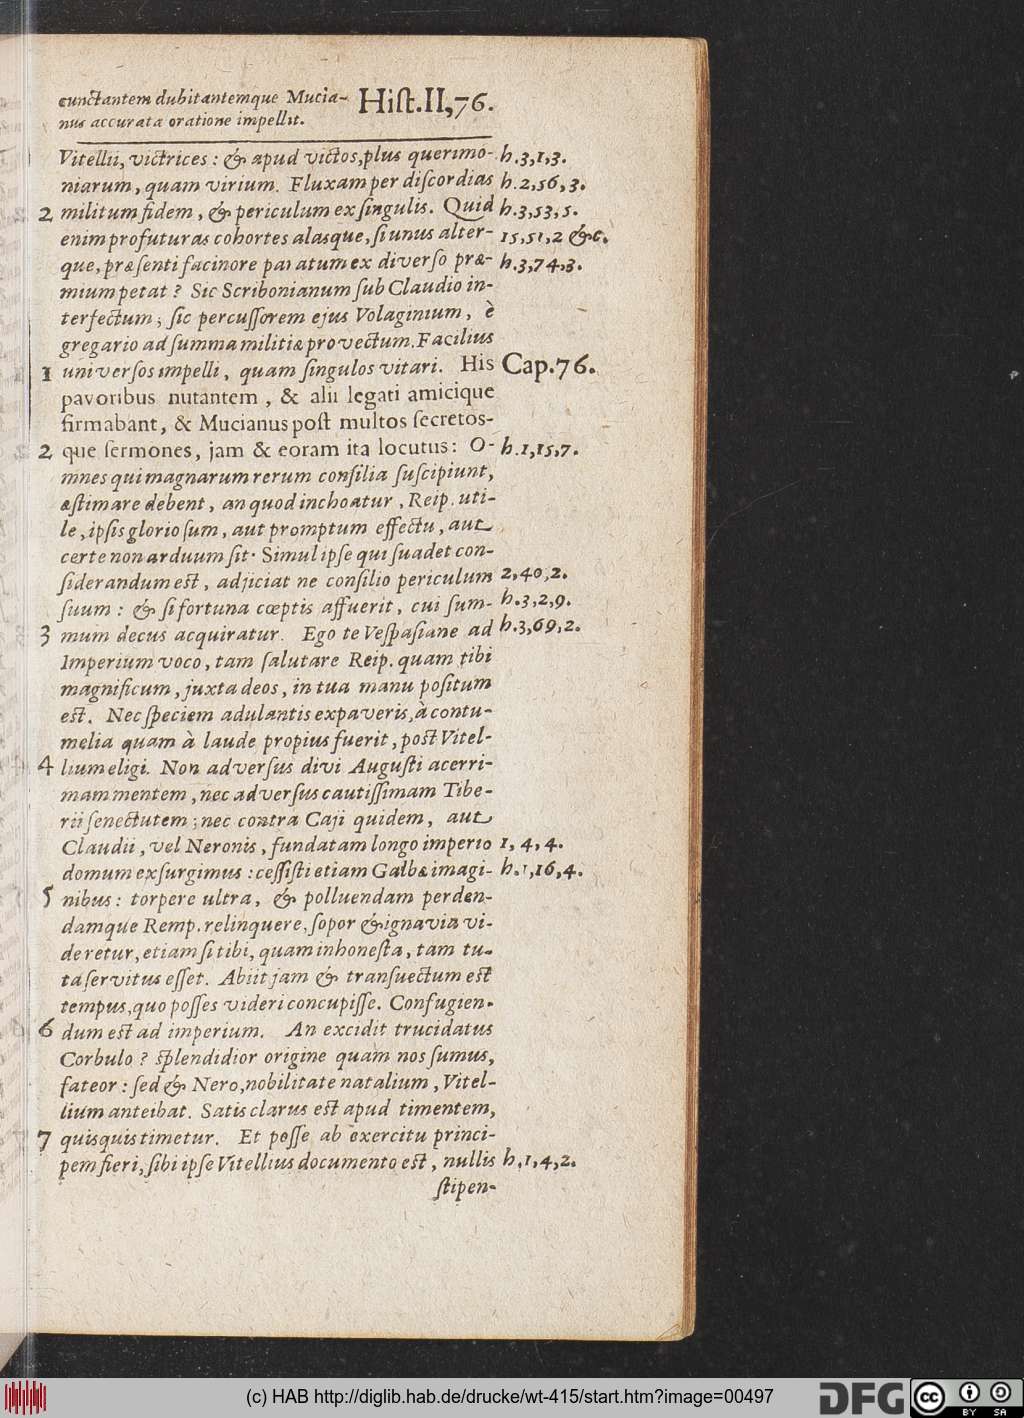 cunctantem dubitantemque Mucia- Hiſt.II,76.
nus accurata oratione impellit.
Vitellii, victrices: & apud victos, plus querimo- h.3,1,3.
niarum, quam virium. Fluxam per diſcordias h.2,56,3.
2 militum fidem, & periculum ex ſingulis. Quid h.3,53,5.
enim profuturas cohortes alasque, ſi unus alter- 15,51,2 &c.
que, præſenti facinore paratum ex diverſo præ- h.3,74,3.
mium petat? Sic Scribonianum ſub Claudio in-
terfectum; ſic percuſſorem ejus Volaginium, è
gregario ad ſumma militiæ provectum. Facilius
1 univerſos impelli, quam ſingulos vitari. His Cap.76.
pavoribus nutantem, & alii legati amicique
firmabant, & Mucianus poſt multos ſecretos-
2 que ſermones, jam & coram ita locutus: O- h.1,15,7.
mnes qui magnarum rerum conſilia ſuſcipiunt,
æſtimare debent, an quod inchoatur, Reip. uti-
le, ipſis glorioſum, aut promptum effectu, aut
certe non arduum ſit. Simul ipſe qui ſuadet con-
ſiderandum eſt, adjiciat ne conſilio periculum 2,40,2.
ſuum: & ſi fortuna cœptis affuerit, cui ſum- h.3,2,9.
3 mum decus acquiratur. Ego te Veſpaſiane ad h.3,69,2.
Imperium voco, tam ſalutare Reip. quam tibi
magnificum, juxta deos, in tua manu poſitum
eſt. Nec ſpeciem adulantis expaveris, à contu-
melia quam à laude propius fuerit, poſt Vitel-
4 lium eligi. Non adverſus divi Auguſti acerri-
mam mentem, nec adverſus cautiſſimam Tibe-
rii ſenectutem; nec contra Caji quidem, aut
Claudii, vel Neronis, fundatam longo imperio 1,4,4.
domum exſurgimus: ceſſiſti etiam Galbæ imagi- h.1,16,4.
5 nibus: torpere ultra, & polluendam perden-
damque Remp. relinquere, ſopor & ignavia vi-
deretur, etiam ſi tibi, quam inhoneſta, tam tu-
ta ſervitus eſſet. Abiit jam & transvectum eſt
tempus, quo poſſes videri concupiſſe. Confugien-
6 dum eſt ad imperium. An excidit trucidatus
Corbulo? ſplendidior origine quam nos ſumus,
fateor: ſed & Nero, nobilitate natalium, Vitel-
lium anteibat. Satis clarus eſt apud timentem,
7 quisquis timetur. Et poſſe ab exercitu princi-
pem fieri, ſibi ipſe Vitellius documento eſt, nullis h.1,4,2.
ſtipen-
(c) HAB http://diglib.hab.de/drucke/wt-415/start.htm?image=00497
DFG
cc BY SA